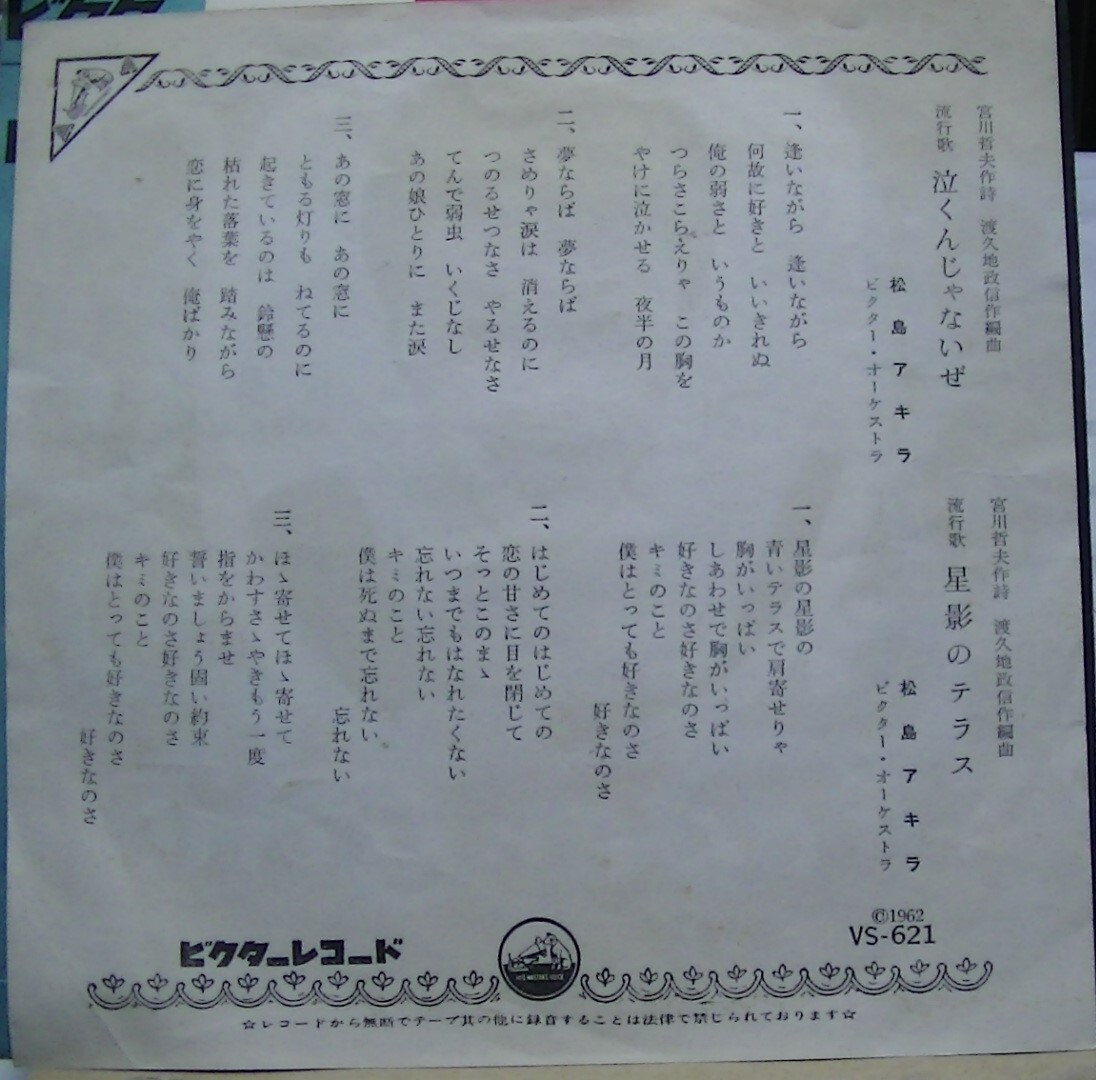 宮川哲夫作詩　渡久地政信作編曲
流行歌　泣くんじゃないぜ
松島アキラ
ビクター・オーケストラ
一、逢いながら　逢いながら
何故に好きと　いいきれぬ
俺の弱さと　いうものか
つらさこらえりゃ　この胸を
やけに泣かせる　夜半の月
二、夢ならば　夢ならば
さめりゃ涙は　消えるのに
つのるせつなさ　やるせなさ
てんで弱虫　いくじなし
あの娘ひとりに　また涙
三、あの窓に　あの窓に
ともる灯りも　ねてるのに
起きているのは　鈴懸の
枯れた落葉を　踏みながら
恋に身をやく　俺ばかり
宮川哲夫作詩　渡久地政信作編曲
流行歌　星影のテラス
松島アキラ
ビクター・オーケストラ
一、星影の星影の
青いテラスで肩寄せりゃ
胸がいっぱい
しあわせで胸がいっぱい
好きなのさ好きなのさ
キミのこと
僕はとっても好きなのさ
好きなのさ
二、はじめてのはじめての
恋の甘さに目を閉じて
そっとこのまゝ
いつまでもはなれたくない
忘れない忘れない
キミのこと
僕は死ぬまで忘れない
忘れない
三、ほゝ寄せてほゝ寄せて
かわすさゝやきもう一度
指をからませ
誓いましょう固い約束
好きなのさ好きなのさ
キミのこと
僕はとっても好きなのさ
好きなのさ
©1962
VS-621
ビクターレコード
HIS MASTER'S VOICE
☆レコードから無断でテープ其の他に録音することは法律で禁じられております☆